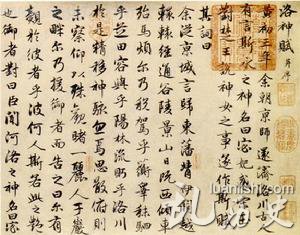 洛神賦 并序
黃初三年余朝京師還濟洛川古人
有言斯水之神名曰宓妃感宋玉
對楚王說神女之事遂作斯賦
其詞曰
余從京城言歸東藩背伊闕越
轘轅經通谷陵景山日既西傾車
殆馬煩尔乃稅駕乎蘅皋秣駟
乎芝田容與乎陽林流眄乎洛川
於是精移神駭忽焉思散俯則
未察仰以殊觀睹一麗人于巖
之畔尔乃援御者而告之曰尔有
覿於彼者乎彼何人斯若此之艷
也御者對曰臣聞河洛之神名曰宓
luanlishi.com
乱历史